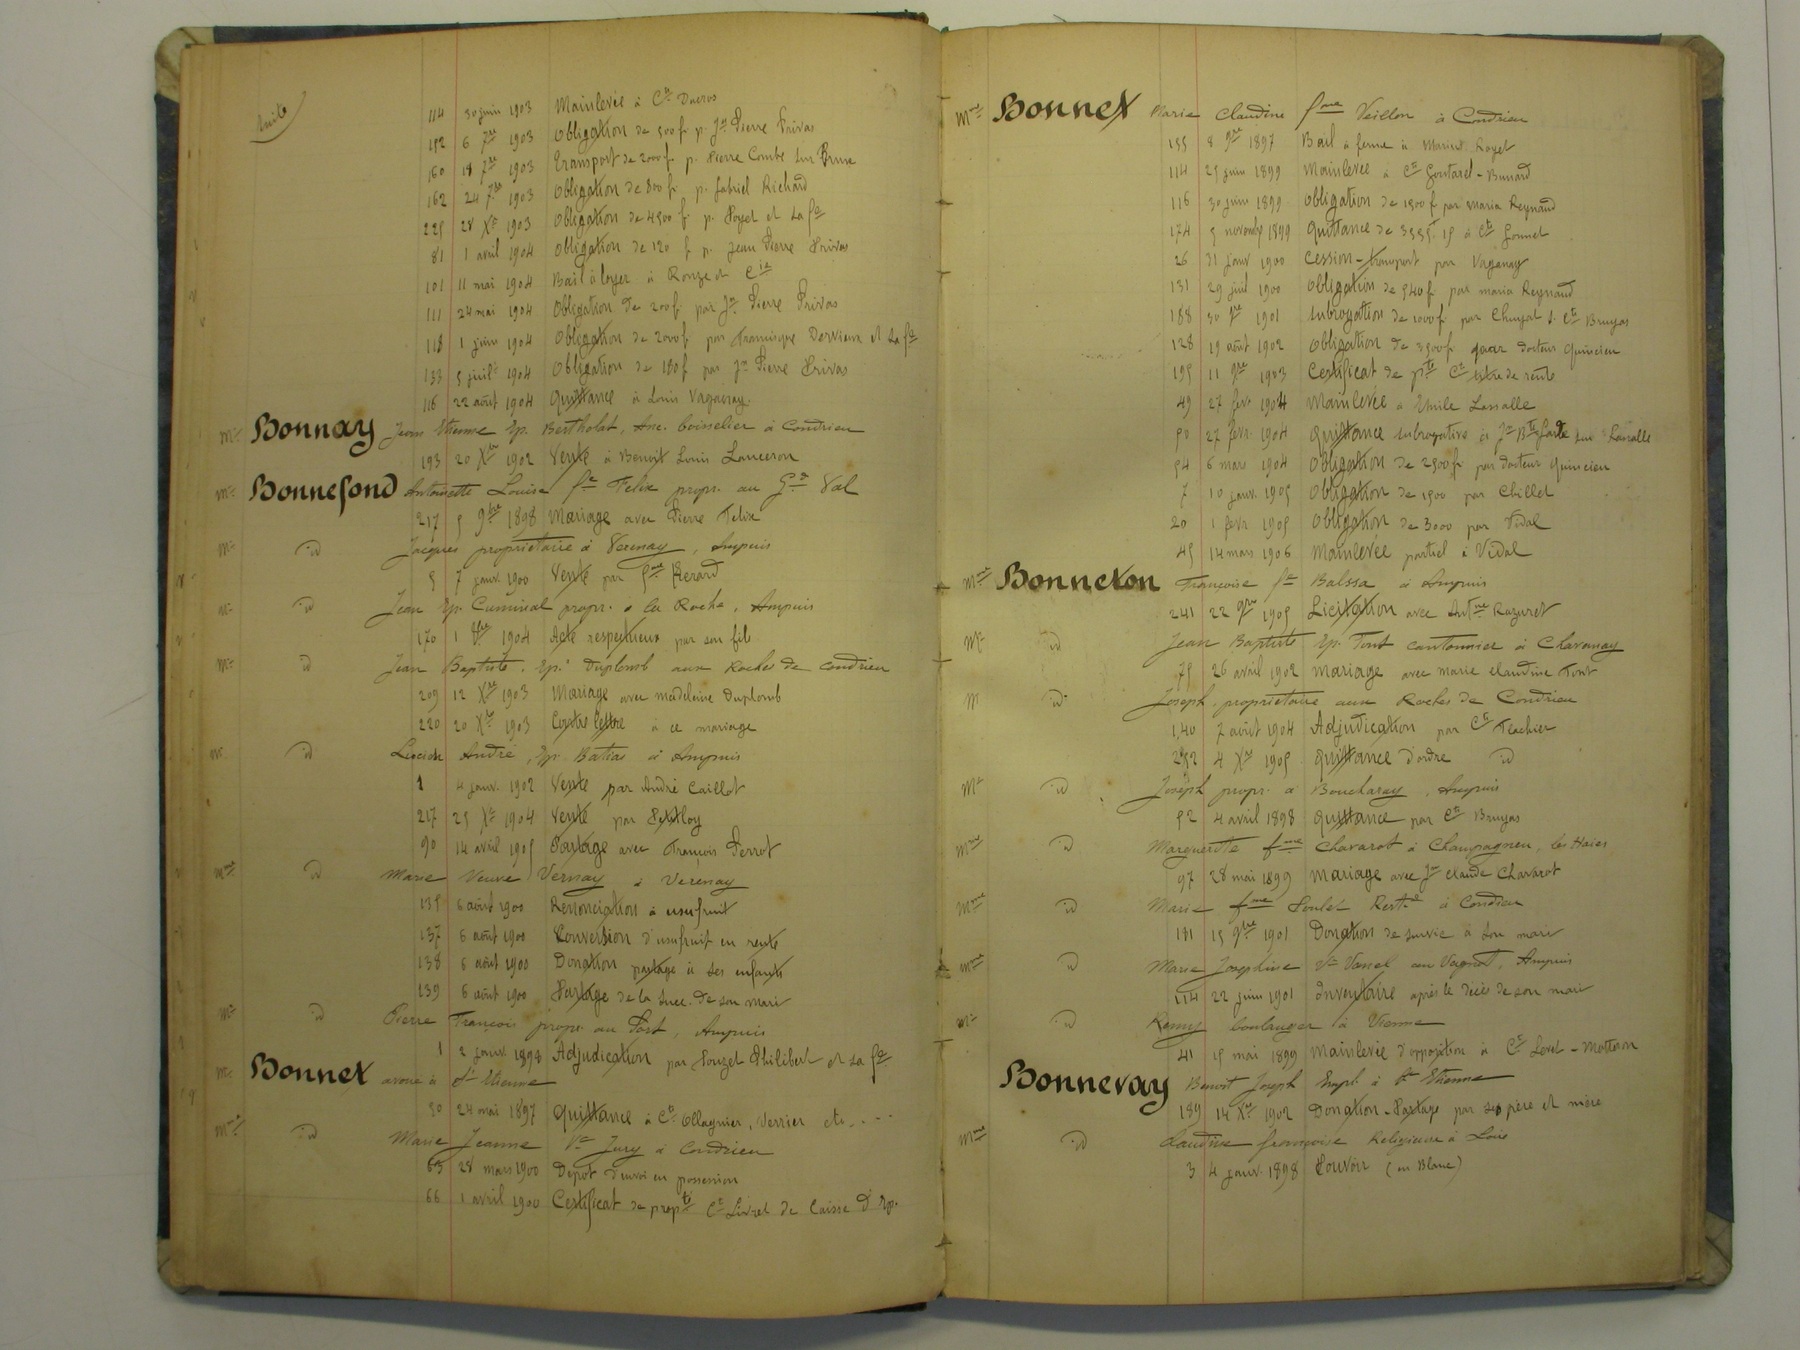 suite
114 30 juin 1903 Mainlevée à Cts Ducros
152 6 7bre 1903 Obligation de 500 f. p. Jn Pierre Privas
160 18 7bre 1903 Transport de 2000 f. p. Pierre Combe sur Brune
162 24 7bre 1903 Obligation de 800 f. p. Gabriel Richard
225 28 Xbre 1903 Obligation de 4500 f. p. Poyet et sa fe
81 1 avril 1904 Obligation de 120 f. p. Jean Pierre Privas
101 11 mai 1904 Bail à loyer à Ronze et Cie
111 24 mai 1904 Obligation de 200 f. par Jn Pierre Privas
118 1 juin 1904 Obligation de 2000 f. par Dervieux et sa fe
133 5 juilt 1904 Obligation de 180 f. par Jn Pierre Privas
116 22 août 1904 Quittance à Louis Vaganay.
Mr Bonnay Jean Etienne Ep. Bertholat, Anc. boisselier à Condrieu
193 20 Xbre 1902 Vente à Benoit Louis Lanceron
Mr Bonnefond Antoinette Louise fe Felix propr. au Gd Val
217 5 9bre 1898 Mariage avec Pierre Felix
Mr id Jacques propriétaire à Verenay, Ampuis
5 7 janv. 1900 Vente par fme Gerard
Mr id Jean Ep. Cuminal propr. à la Roche, Ampuis
170 1 8bre 1904 Acte respectueux par son fils
Mr id Jean Baptiste. Ep. Duplomb aux Roches de Condrieu
209 12 Xbre 1903 Mariage avec Madeleine Duplomb
220 20 Xbre 1903 Contre lettre à ce mariage
Mr id Lucien André, Ep. Batias à Ampuis
1 4 janv. 1902 Vente par André Caillot
217 25 Xbre 1904 Vente par
90 14 avril 1905 Partage avec François Perrot
Mme id Marie Veuve Vernay à Verenay
135 6 août 1900 Renonciation à usufruit
137 6 août 1900 Conversion d'usufruit en rente
138 6 août 1900 Donation partage à ses enfants
139 6 août 1900 Partage de la succ. de son mari
Mr id Pierre François propr. au Port, Ampuis
1 2 janv. 1898 Adjudication par Pouzet Philibert et sa fe
Mr Bonnet avoué à St Etienne
50 24 mai 1897 Quittance à Cts Ollagnier, Verrier etc...
Mme id Marie Jeanne Ve Jury à Condrieu
63 28 mars 1900 Dépôt d'envoi en possession
66 1 avril 1900 Certificat de propté Ct Livret de Caisse d'Ep.
Mme Bonnet Marie Claudine fme Veillon à Condrieu
155 8 9bre 1897 Bail à ferme à Marius Royet
114 25 juin 1899 Mainlevée à Cts Goutarel-Bunard
116 30 juin 1899 Obligation de 1500 f par Maria Reynaud
174 5 novembre 1899 Quittance de 3555f.15 à Cts Gonnet
26 31 janv 1900 Cession-transport par Vaganay
131 29 juil 1900 Obligation de 540 f. par Maria Reynaud
188 30 9bre 1901 Subrogation de 1000 f par s. Cts Bruyas
128 19 août 1902 Obligation de 3500 f. par docteur Quincieu
195 11 9bre 1903 Certificat de pté Ct titre de rente
49 27 fevr 1904 Mainlevée à Emile Lassalle
50 27 fevr. 1904 Quittance subrogative à Jn Bte sur Lassalle
54 6 mars 1904 Obligation de 2500 f. par docteur Quincieu
7 10 janv. 1905 Obligation de 1500 par Chillet
20 1 fevr. 1905 Obligation de 3000 par Vidal
45 14 mars 1906 Mainlevée partiel à Vidal
Mme Bonneton Françoise fe Balssa à Ampuis
241 22 9bre 1905 Licitation avec Antne Razuret
Mr id Jean Baptiste Ep. Tont cantonnier à Chavanay
75 26 avril 1902 Mariage avec Marie Claudine Tont
Mr id Joseph propriétaire aux Roches de Condrieu
140 7 août 1904 Adjudication par Cts Flachier
252 4 Xbre 1905 Quittance d'ordre id
Mr id Joseph propr. à Boucharay, Ampuis
52 4 avril 1898 Quittance par Cts Bruyas
Mme id Marguerite fme Chavarot à Champagneu, les Haies
97 28 mai 1899 Mariage avec Jn Claude Chavarot
Mme id Marie fme Poulet à Condrieu
181 15 9bre 1901 Donation de survie à son mari
Mme id Marie Josephine Ve Vanel au Vagnot, Ampuis
114 22 juin 1901 Inventaire après le décès de son mari
Mr id Remy boulanger à Vienne
41 15 mai 1899 Mainlevée d'opposition à Ct
Bonnevay Benoit Joseph Empl. à St Etienne
189 14 Xbre 1902 Donation-Partage par ses père et mère
Mme id Claudine françoise Religieuse à
3 4 janv. 1898 Pouvoir (en Blanc)